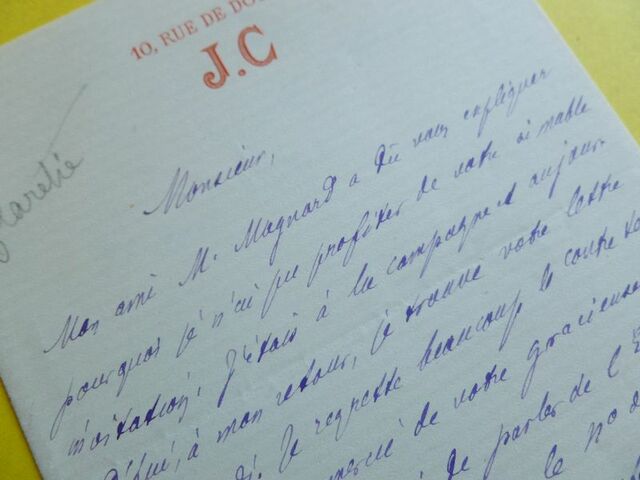 10, RUE DE DO
J.C
Claretie
Monsieur,
Mon ami M. Magnard a dû vous expliquer
pourquoi je n'ai pu profiter de votre aimable
invitation. J'étais à la campagne et aujour-
d'hui, à mon retour, je trouve votre lettre
Je regrette beaucoup le contre te
de votre gracieuse
de parler de l'E
le no